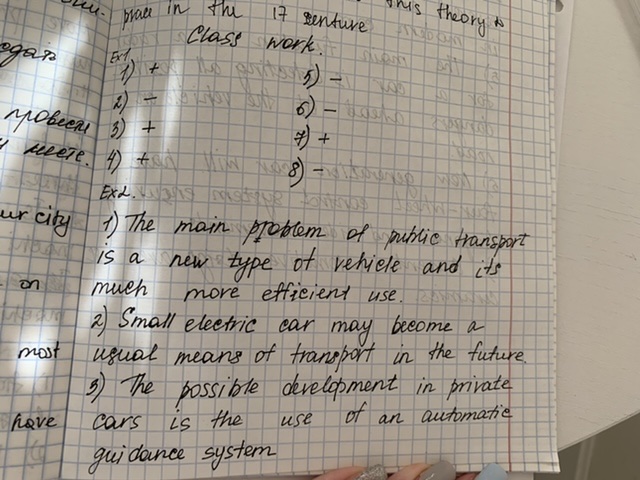 this theory is
place in the 17 senture
Class work.
Ex1
1) + 5) -
2) - 6) -
3) + 7) +
4) + 8) -
Ex2.
1) The main problem of public transport
is a new type of vehicle and its
much more efficient use.
2) Small electric car may become a
usual means of transport in the future.
3) The possible development in private
cars is the use of an automatic
guidance system
ur city
on
most
have